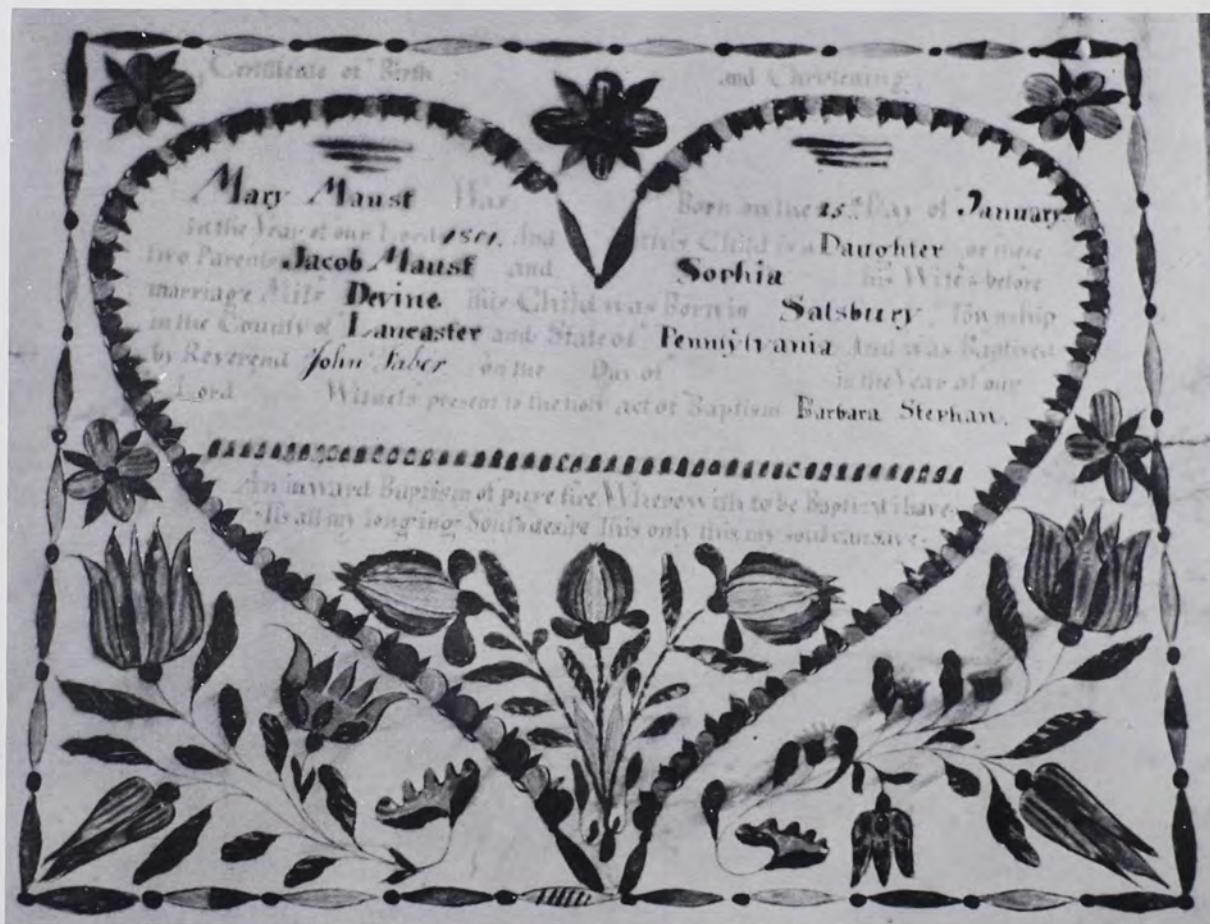 Certificate of Birth and Christening.
Mary Maust Was Born on the 25th Day of January.
in the Year of our Lord 1801. And this Child is a Daughter of these
two Parents Jacob Maust and Sophia his Wife before
marriage Miss Devine. this Child was Born in Salsbury Township
in the County of Lancaster and State of Pennsylvania And was Baptised
by Reverend John Faber on the Day of in the Year of our
Lord Witness present to the holy act of Baptism Barbara Stephan.
An inward Baptism of pure fire Wherewith to be Baptiz'd i have
Tis all my longing Soul's desire This only this my soul can save.